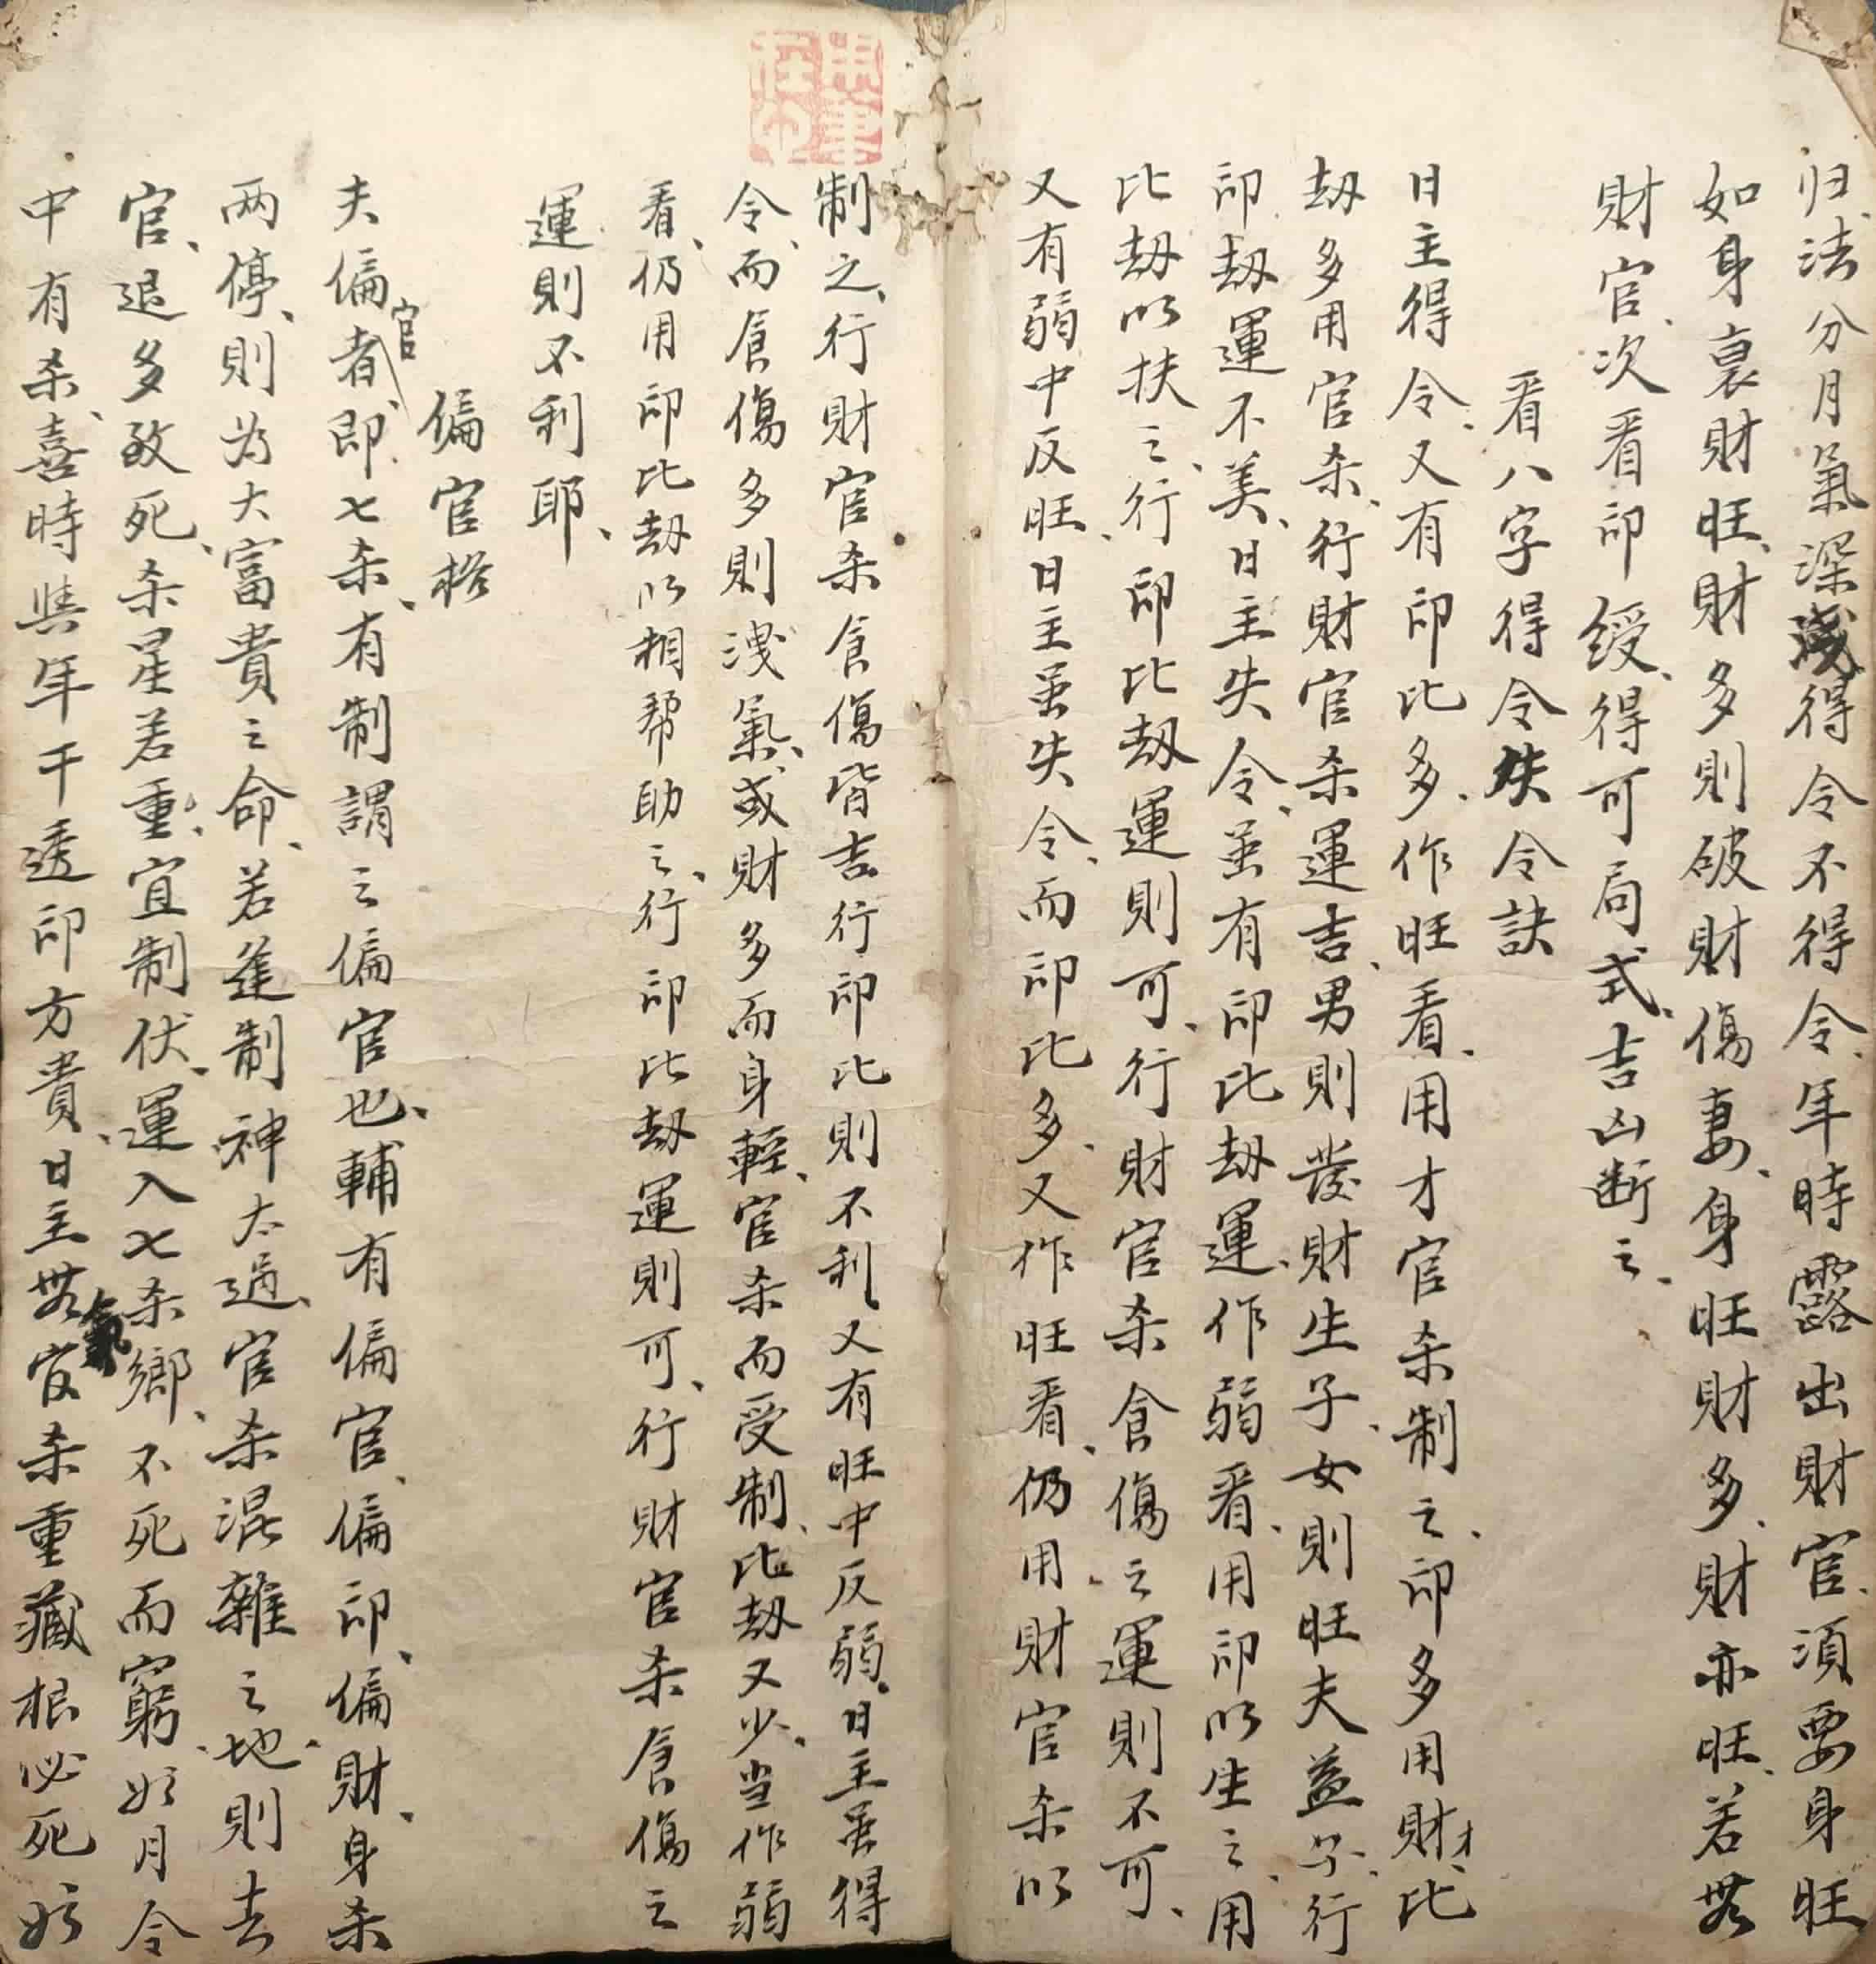 归法分月氣深淺得令不得令、年時露出財官、須要身旺
如身衰財旺、財多則破財傷妻、身旺財多、財亦旺、若無
財官、次看印綬、得可局式、吉凶断之、
看八字得令失令訣
日主得令、又有印比多、作旺看、用才官杀制之、印多用財才、比
劫多用官杀、行財官杀運吉、男則發財生子、女則旺夫益子、行
印劫運不美、日主失令、虽有印比劫運、作弱看、用印以生之、用
比劫以扶之、行印比劫運則可、行財官杀食傷之運則不可、
又有弱中反旺、日主虽失令、而印比多、又作旺看、仍用財官杀以
制之、行財官杀食傷皆吉、行印比則不利、又有旺中反弱、日主虽得
令、而食傷多則洩氣、或財多而身輕、官杀而受制、比劫又少、当作弱
看、仍用印比劫以相帮助之、行印比劫運則可、行財官杀食傷之
運則不利耶、
偏官格
夫偏官者、即七杀、有制謂之偏官也、輔有偏官、偏印、偏財、身杀
两停、則为大富貴之命、若進制神太過、官杀混雜之地、則去
官、退多致死、杀星若重、宜制伏、運入七杀鄉、不死而窮、如月令
中有杀、喜時與年干透印方貴、日主無氣官杀重藏根必死於